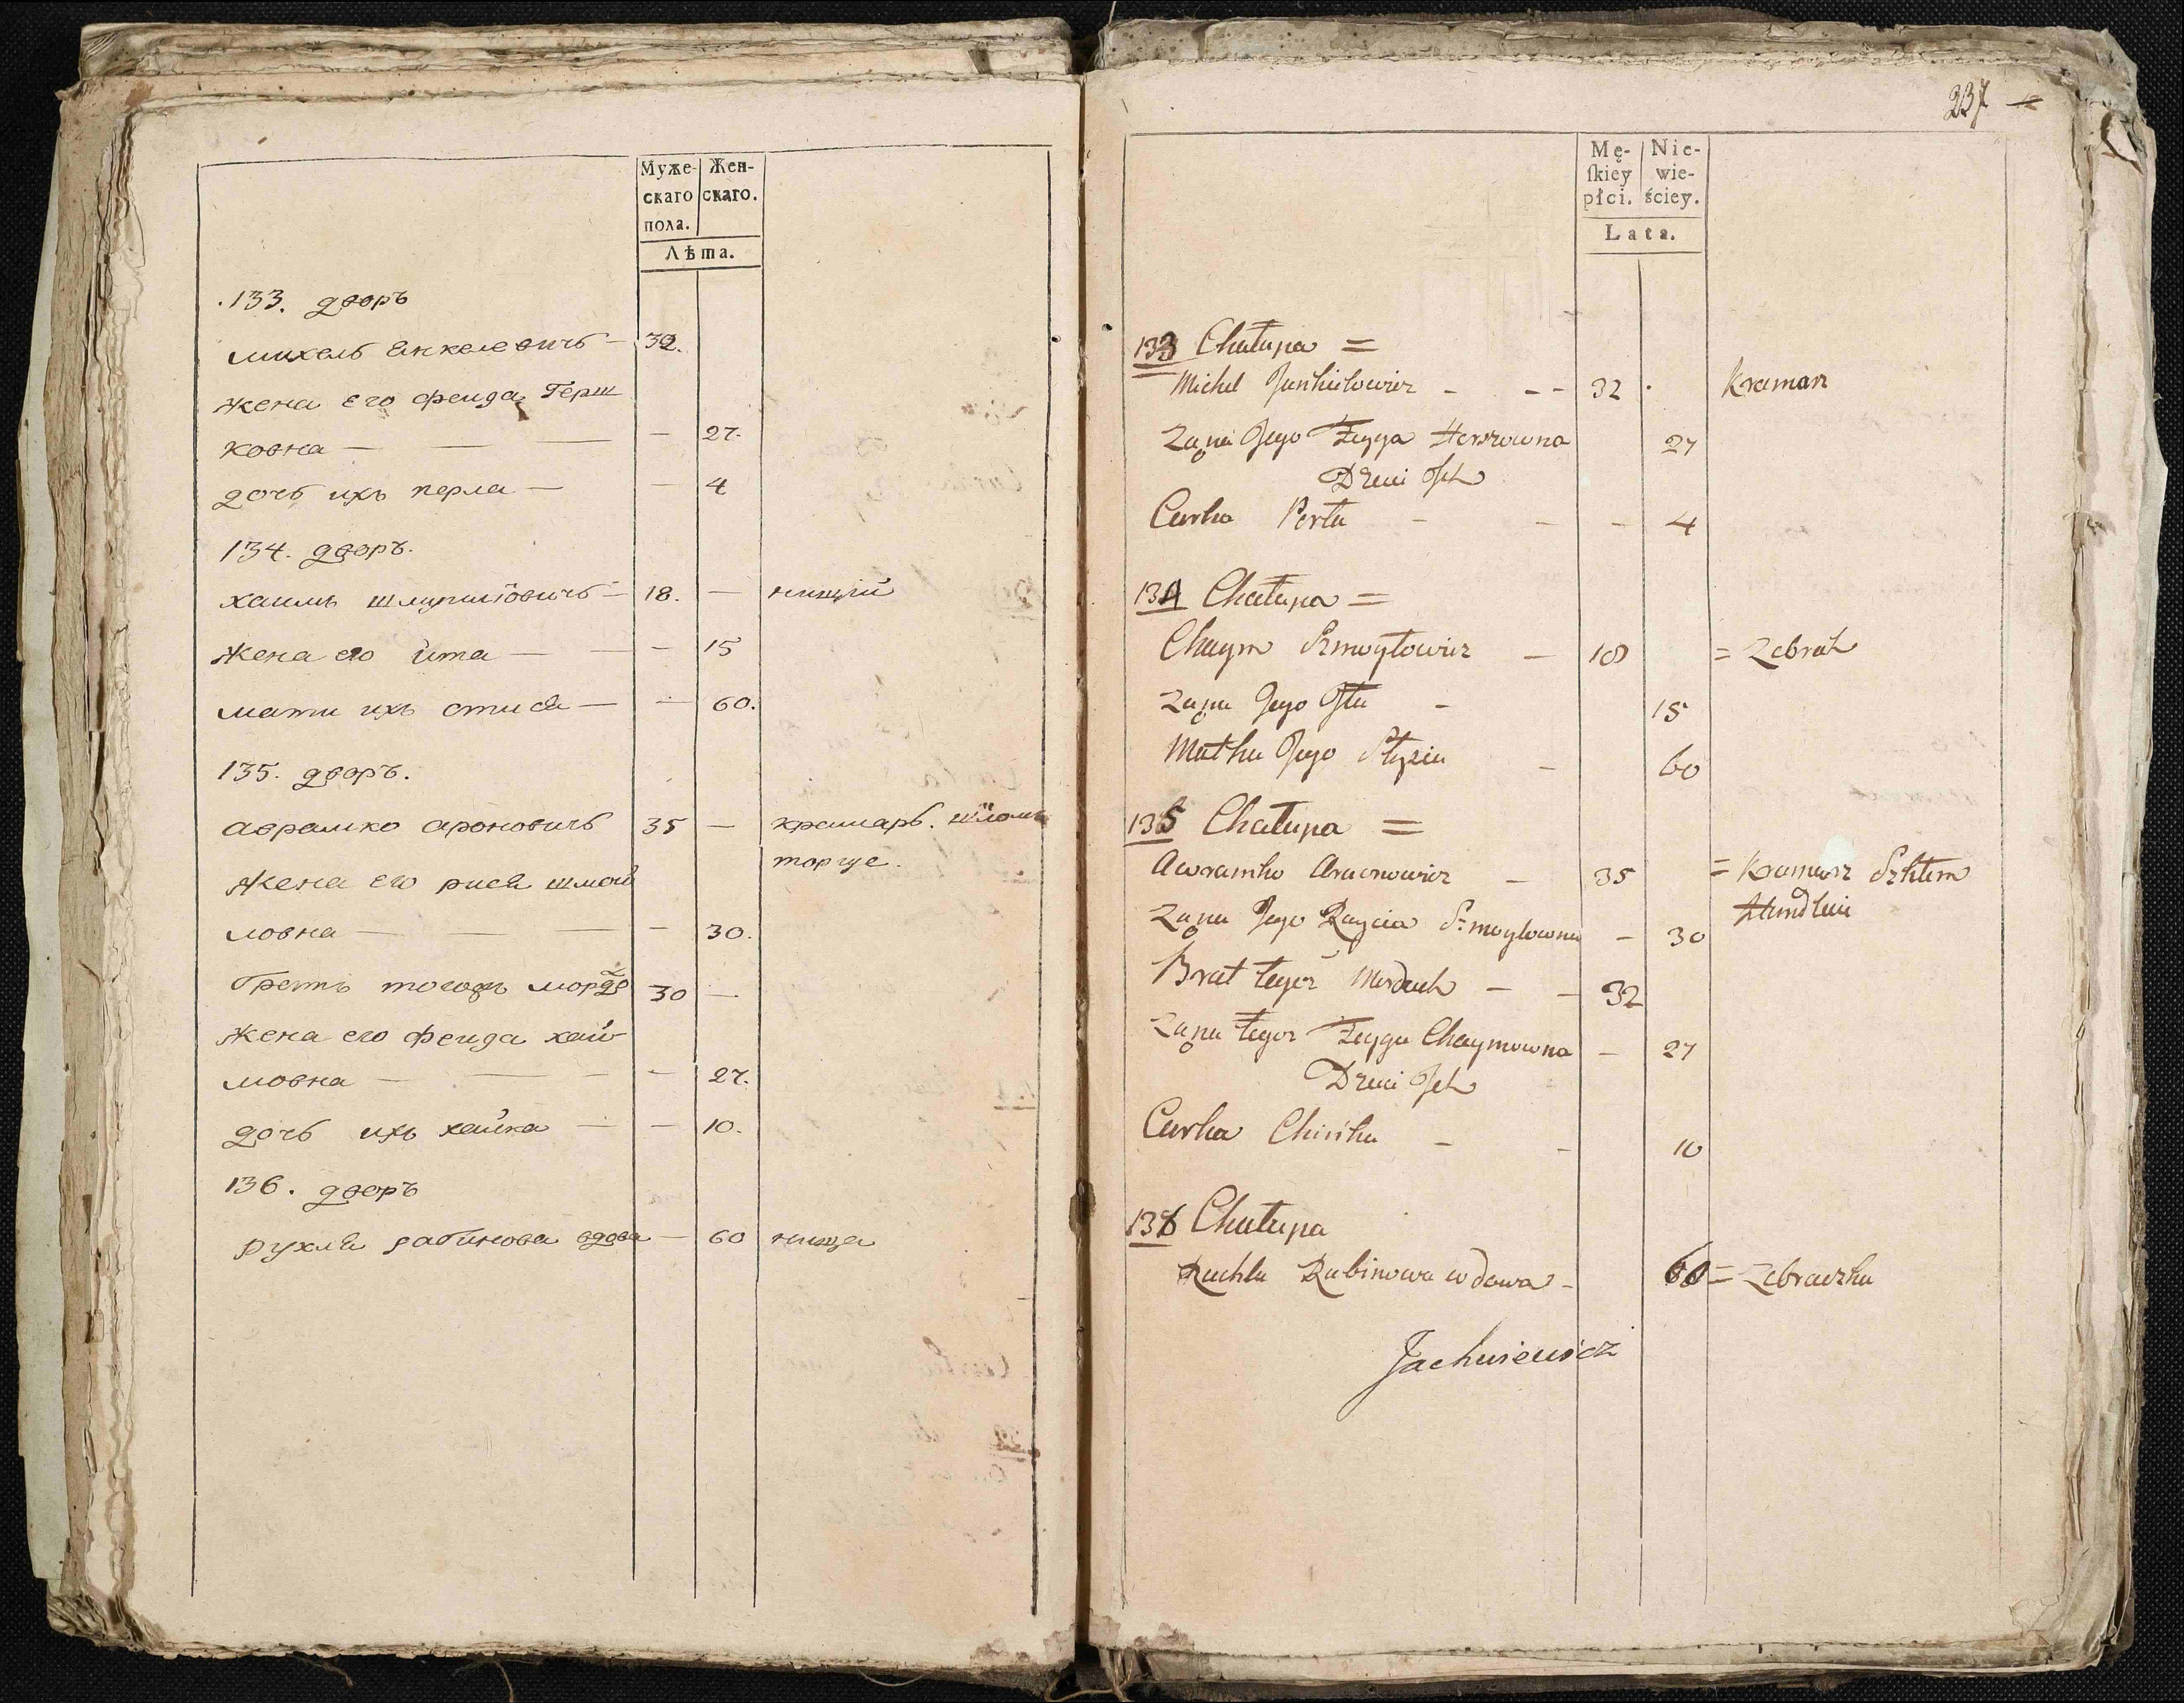 Муже- Жен-
скаго скаго.
пола.
Лѣта.
.133. дворъ
михель Енкелевичъ — 32.
жена его фейда Герш
ковна — — — — 27.
дочь ихъ перла — — 4
134. дворъ.
хаимъ шмуйловичъ — 18. — нищій
жена его ита — — — 15
мати ихъ стися — — 60.
135. дворъ.
аврамко ароновичъ 35 — крамарь.
торгуе.
жена его рися шмой
ловна — — — — 30.
братъ тогожъ морд 30 —
жена его фейда хаи
мовна — — — — 27.
дочь ихъ хайка — — 10.
136. дворъ
рухля рабинова вдова — 60 нища
237
Mę- Nie-
ſkiey wie-
płci. ściey.
Lata.
133 Chałupa =
Michel Jankielowicz - - - 32 . Kramarz
Zona Jego Feyga Herszowna 27
Dzieci Jch
Curka Perła - - - 4
134 Chałupa =
Chaym Szmoyłowicz — 18 = Zebrak
Zona Jego Jta - 15
Matka Jego Stysia - 60
135 Chałupa =
Awramko Aronowicz — 35 = Kramarz Szkłem
Handluie
Zona Jego Raycia Szmoylowna — 30
Brat tegoz Morduch — — 32
Zona tegoz Feyga Chaymowna — 27
Dzieci Jch
Curka Chayka - - 10
136 Chałupa
Ruchla Rabinowa wdowa - 60 = Zebraczka
Jachniewicz